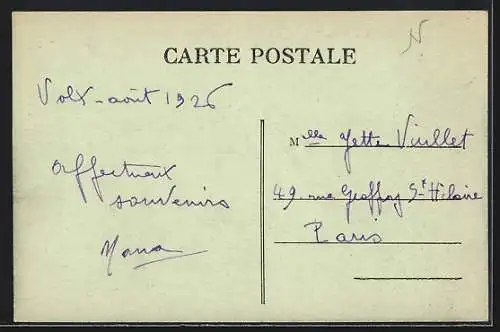 N
CARTE POSTALE
Volx - août 1926
Affectueux
souvenirs
Mlle Yette Viullet
49. rue Geoffroy St Hilaire
Paris